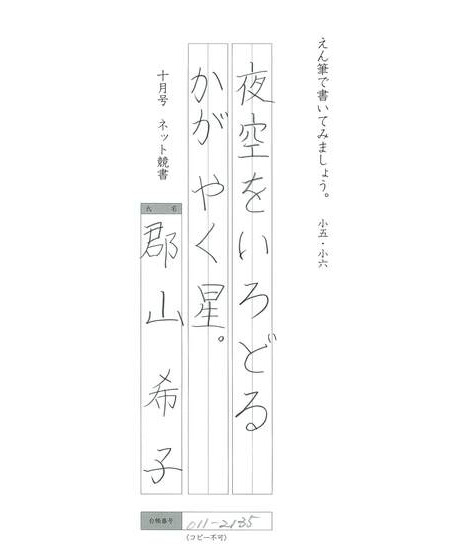 えん筆で書いてみましょう。 小五・小六
夜空をいろどる
かがやく星。
十月号 ネット競書
氏名
郡山希子
台帳番号 011-2135
(コピー不可)